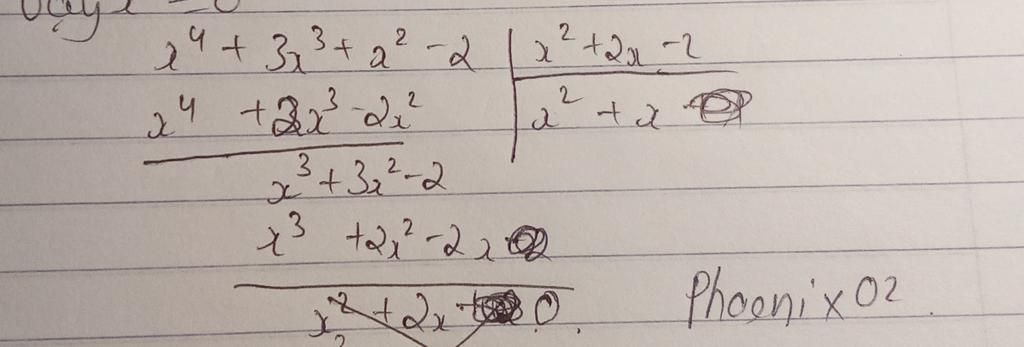 x⁴ + 3x³ + x² - 2 | x² + 2x - 2
x⁴ + 2x³ - 2x² | x² + x
x³ + 3x² - 2
x³ + 2x² - 2x
x² + 2x 0
Phoenix02